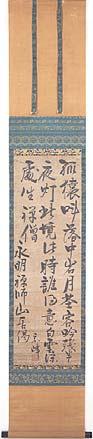 孤猿叫落中岩月埜客吟残半
夜灯此境此時誰得意白雲深
處坐禅僧　永明禅師山居偈